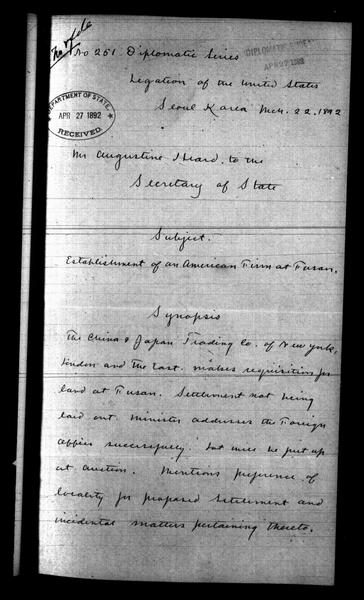 No 251 Diplomatic Series
DIPLOMATIC
APR 27 1892
Legation of the United States
Seoul Korea Mch. 22. 1892
DEPARTMENT OF STATE.
APR 27 1892
RECEIVED.
Mr Augustine Heard, to the
Secretary of State
Subject.
Establishment of an American Firm at Fusan.
Synopsis
The China & Japan Trading Co. of New York,
London and the East. makes requisition for
land at Fusan. Settlement not being
laid out. Minister addresses the Foreign
Office successfully. but must be put up
at auction. Mentions preference of
locality for proposed settlement and
incidental matters pertaining thereto.